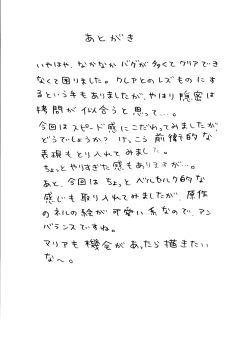 あとがき
いやはや、なかなかバグが多くてクリアでき
なくて困りました。クレアとのレズものにす
るという手もありましたが、やはり隠密は
拷問が似合うと思って…。
今回はスピード感にこだわってみましたが、
どうでしょうか？けっこう前衛的な
表現もとり入れてみました。
ちょっとやりすぎた感もありますが…。
あと、今回はちょっとベルセルク的な
感じも取り入れてみましたが、原作
のネルの絵が可愛い系なので、アン
バランスですね。
マリアも機会があったら描きたい
な～。